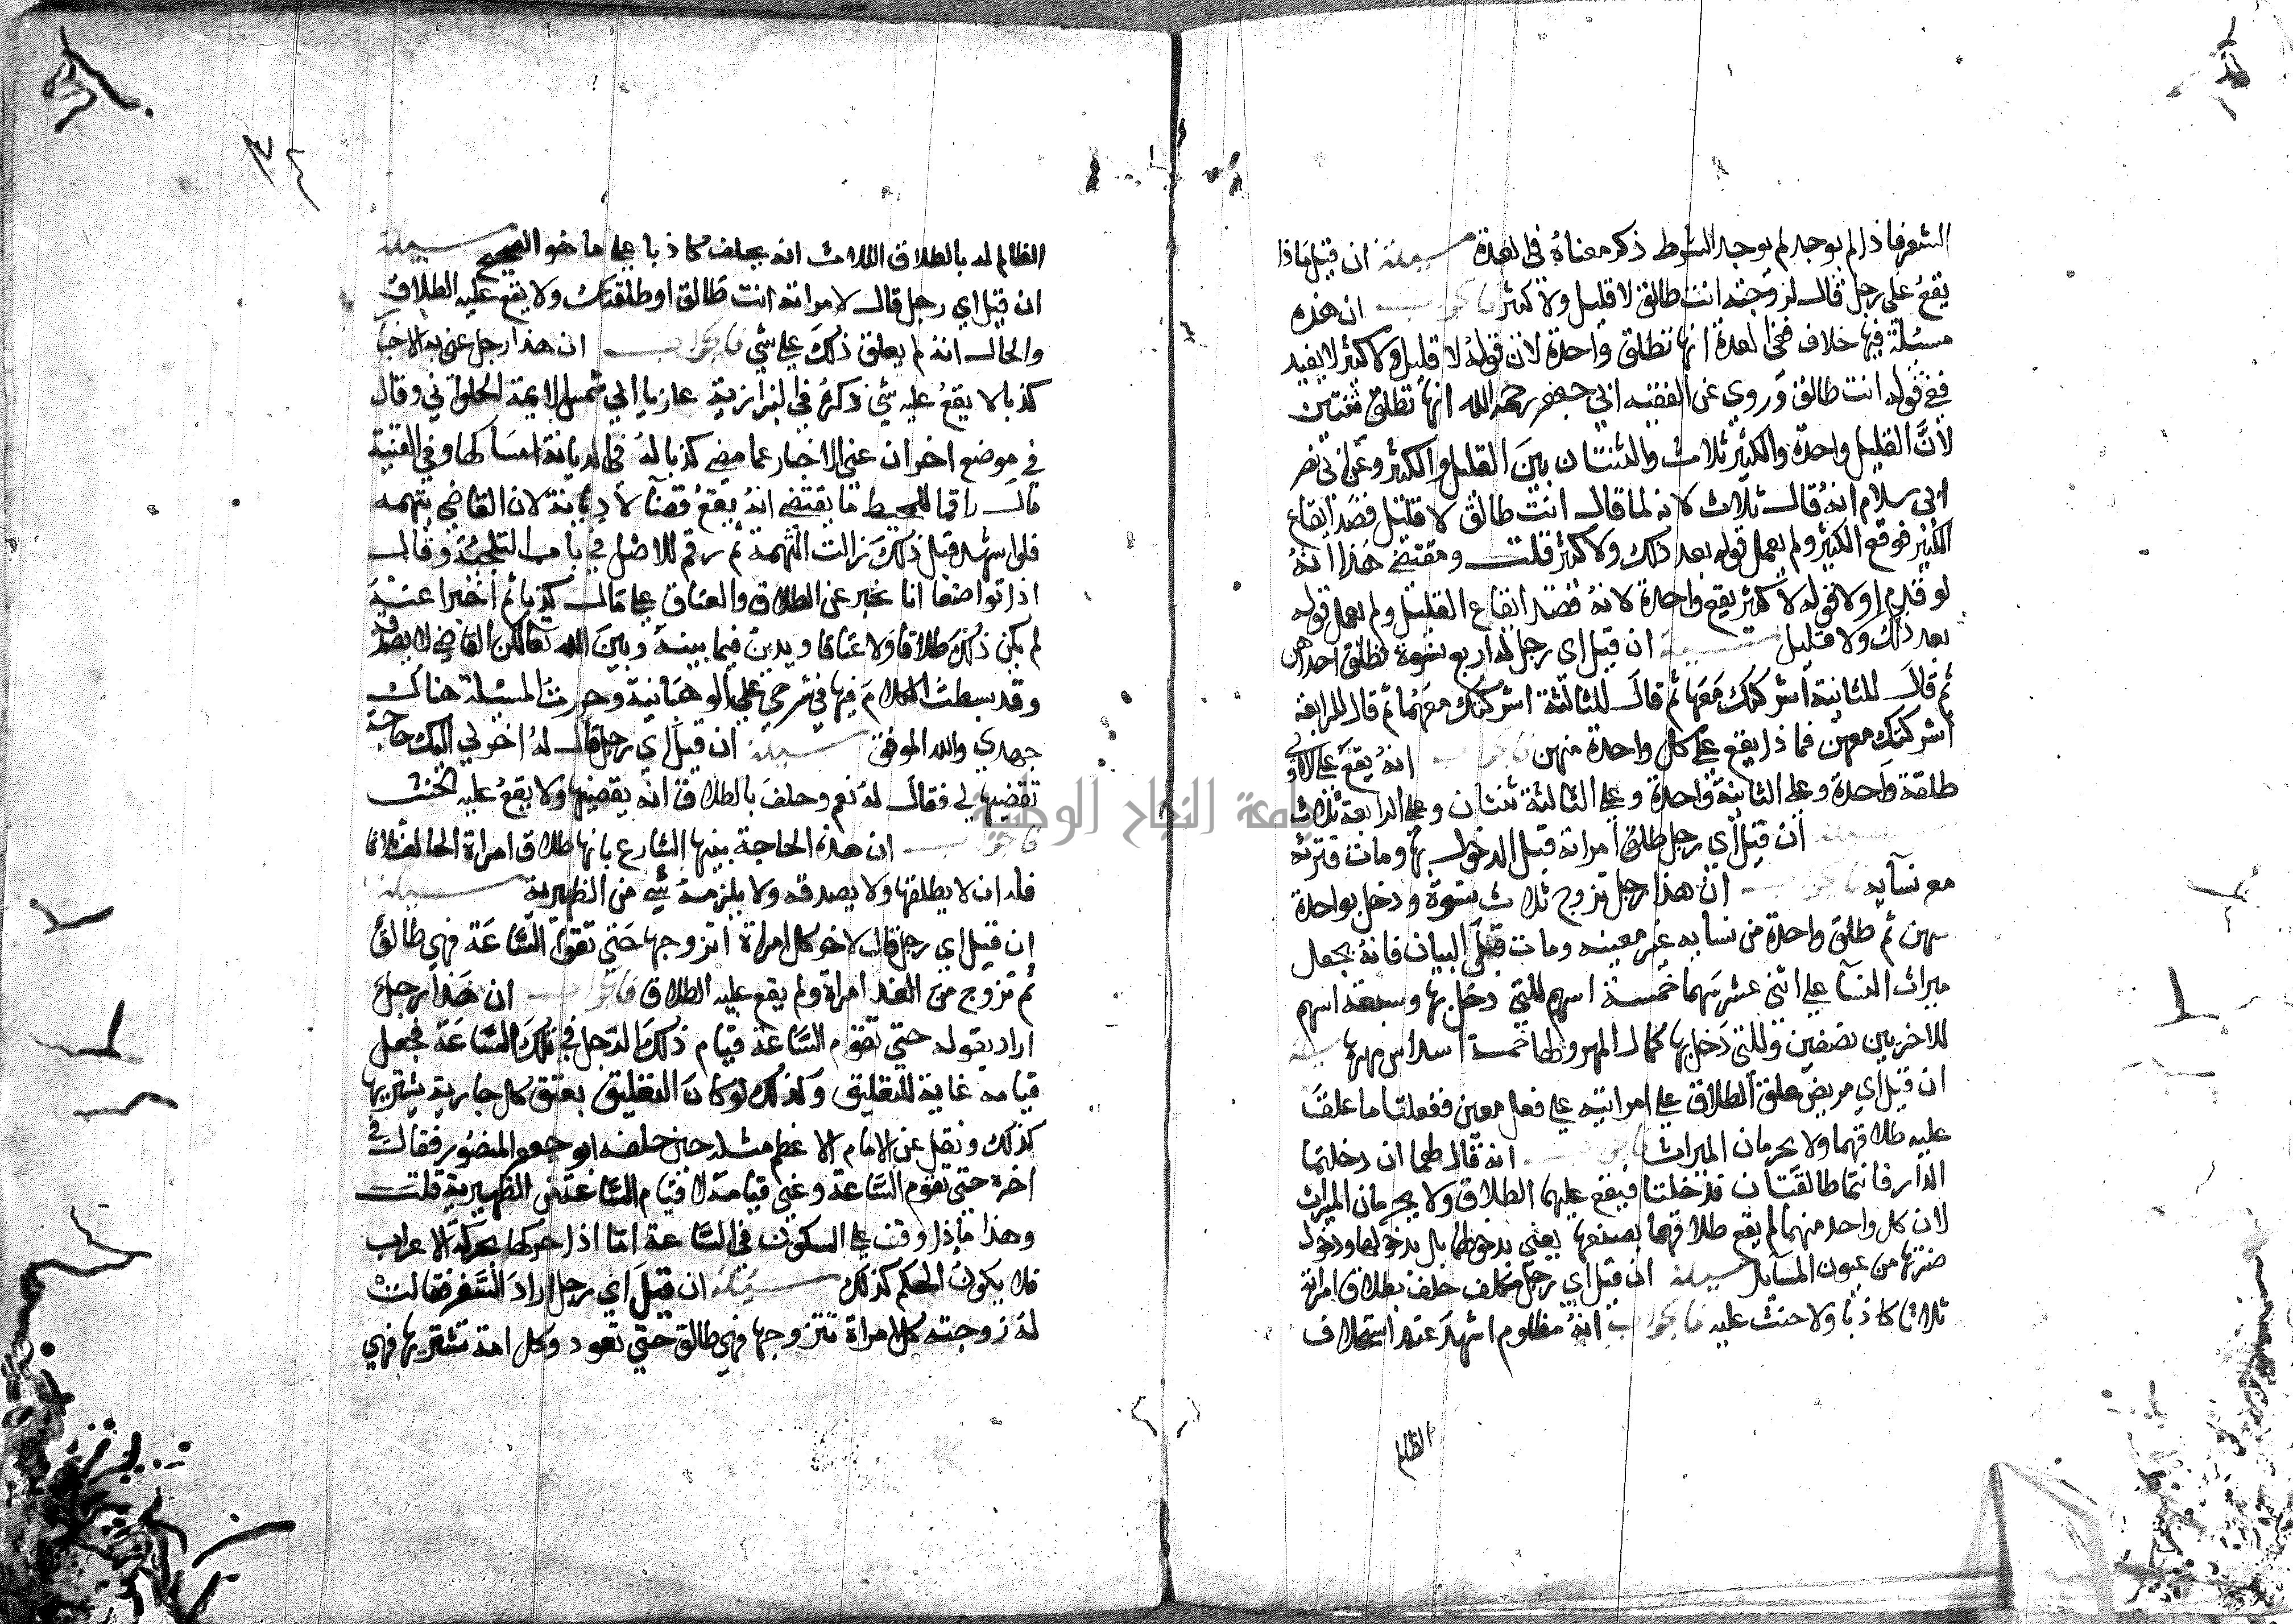 الشعر فاذا لم يوجد لم يوجد الشرط ذكر معناه في العدة مسيلة ان قيل ماذا
يقع على رجل قال لزوجته انت طالق لا قليل ولا كثير فالجواب ان هذه
مسئلة فيها خلاف ففي العدة انها تطلق واحدة لان قوله لا قليل ولا كثير لا يفيد
ففي قوله انت طالق وروي عن الفقيه ابي جعفر رحمه الله انها تطلق ثنتين
لأن القليل واحدة والكثير ثلاث والثنتان بين القليل والكثير وعن ابي نصر
ابن سلام انه قال ثلاث لانه لما قال انت طالق لا قليل قصد ايقاع
الكثير فوقع الكثير ولم يعمل قوله بعد ذلك ولا كثير قلت ومقتضى هذا انه
لو قدم اولا قوله لا كثير يقع واحدة لانه قصد ايقاع القليل ولم يعمل قوله
بعد ذلك ولا قليل مسيلة ان قيل اي رجل له اربع نسوة طلق احداهن
ثم قال للثانية اشركتك معها ثم قال للثالثة اشركتك معهما ثم قال للرابعة
اشركتك معهن فماذا يقع على كل واحدة منهن فالجواب انه يقع على الاولى
طلقة واحدة وعلى الثانية واحدة وعلى الثالثة ثنتان وعلى الرابعة ثلاث
مسيلة ان قيل اي رجل طلق امراته قبل الدخول بها ومات فترثه
مع نسآيه فالجواب ان هذا رجل تزوج ثلاث نسوة ودخل بواحدة
منهن ثم طلق واحدة من نسايه غير معينه ومات قبل البيان فانه يجعل
ميراث النسآ على اثني عشر سهما خمسة اسهم للتي دخل بها وسبعة اسهم
للاخريين نصفين وللتي دخل بها كمال المهر ولهما خمسة اسداس مهرها مسيلة
ان قيل اي مريض علق الطلاق على امراتيه على فعل معين ففعلتا ما علق
عليه طلاقهما ولا يحرمان الميراث فالجواب انه قال لهما ان دخلتما
الدار فانتما طالقتان فدخلتا فيقع عليهما الطلاق ولا يحرمان الميراث
لان كل واحد منهما لم يقع طلاقهما بصنعها يعني بدخولها بل بدخولها ودخول
ضرتها من عيون المسآيل مسيلة ان قيل اي رجل مكلف حلف بطلاق امراته
ثلاثا كاذبا ولا حنث عليه فالجواب انه مظلوم اشهد عند استحلاف
الظالم
الظالم له بالطلاق الثلاث انه يحلف كاذبا على ما هو الصحيح مسيلة
ان قيل اي رجل قال لامراته انت طالق او طلقتك ولا يقع عليه الطلاق
والحال انه لم يعلق ذلك على شي فالجواب ان هذا رجل عنى به الاخبار
كذبا لا يقع عليه شي ذكره في البزازية عازيا الي شمس الايمة الحلواني وقال
في موضع اخر ان عنى الاخبار عما مضى كذبا له في الديانة امساكها وفي القنية
قال راقما للمحيط ما يقتضى انه يقع قضآ لا ديانة لان القاضي يتهمه
فلو اشهد قبل ذلك زالت التهمة ثم رقم للاصل في باب التلجئة وقال
اذا تواضعا انا نخبر عن الطلاق والعتاق على مال كذبا ثم اخبرا عنه
لم يكن ذلك طلاقا ولا عتاقا ويدين فيما بينه وبين الله تعالى لكن القاضي لا يصدقه
وقد بسطت الكلام فيها في شرحي على الوهبانية وحررت المسئلة هناك
جهدي والله الموفق مسيلة ان قيل اي رجل قال له اخر لي اليك حاجة
تقضيها لي فقال له نعم وحلف بالطلاق انه يقضيها ولا يقع عليه الحنث
فالجواب ان هذه الحاجة بينها الشارع بانها طلاق امراة الحالف ثلاثا
فله ان لا يطلقها ولا يصدقه ولا يلزمه شي من الظهيرية مسيلة
ان قيل اي رجل قال لاخر كل امراة اتزوجها حتى تقوم السّاعة فهي طالق
ثم تزوج من الغد امراة ولم يقع عليه الطلاق فالجواب ان هذا رجل
اراد بقوله حتي تقوم السّاعة قيام ذلك الرجل في تلك السّاعة فجعل
قيامه غاية للتعليق وكذلك لو كان التعليق بعتق كل جارية يشتريها
كذلك ونقل عن الامام الاعظم مثله حين حلفه ابو جعفر المنصور فقال في
اخره حتى تقوم السّاعة وعني قيامه لا قيام السّاعة من الظهيرية قلت
وهذا ماذا وقف على السكون في السّاعة امّا اذا حركها بحركة الاعراب
فلا يكون الحكم كذلك مسيلة ان قيل اي رجل اراد السّفر فقالت
له زوجته كل امراة تتزوجها فهي طالق حتي تعود وكل امة تشتريها فهي
جامعة النجاح الوطنية